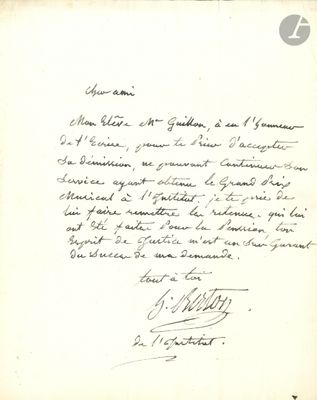 Cher ami
Mon Elève Mr Guillon, à eu l'honneur
de t'Ecrire, pour te Prier d'accepter
Sa démission, ne pouvant Continuer Son
Service ayant obtenu le Grand Prix
Musical à l'Institut. je te prie de
lui faire remettre la retenue qui lui
ont Eté faites Pour la Pension ton
Esprit de Justice m'est un Sur Garant
du Succès de ma demande.
tout à toi
h. Berton
de l'institut.